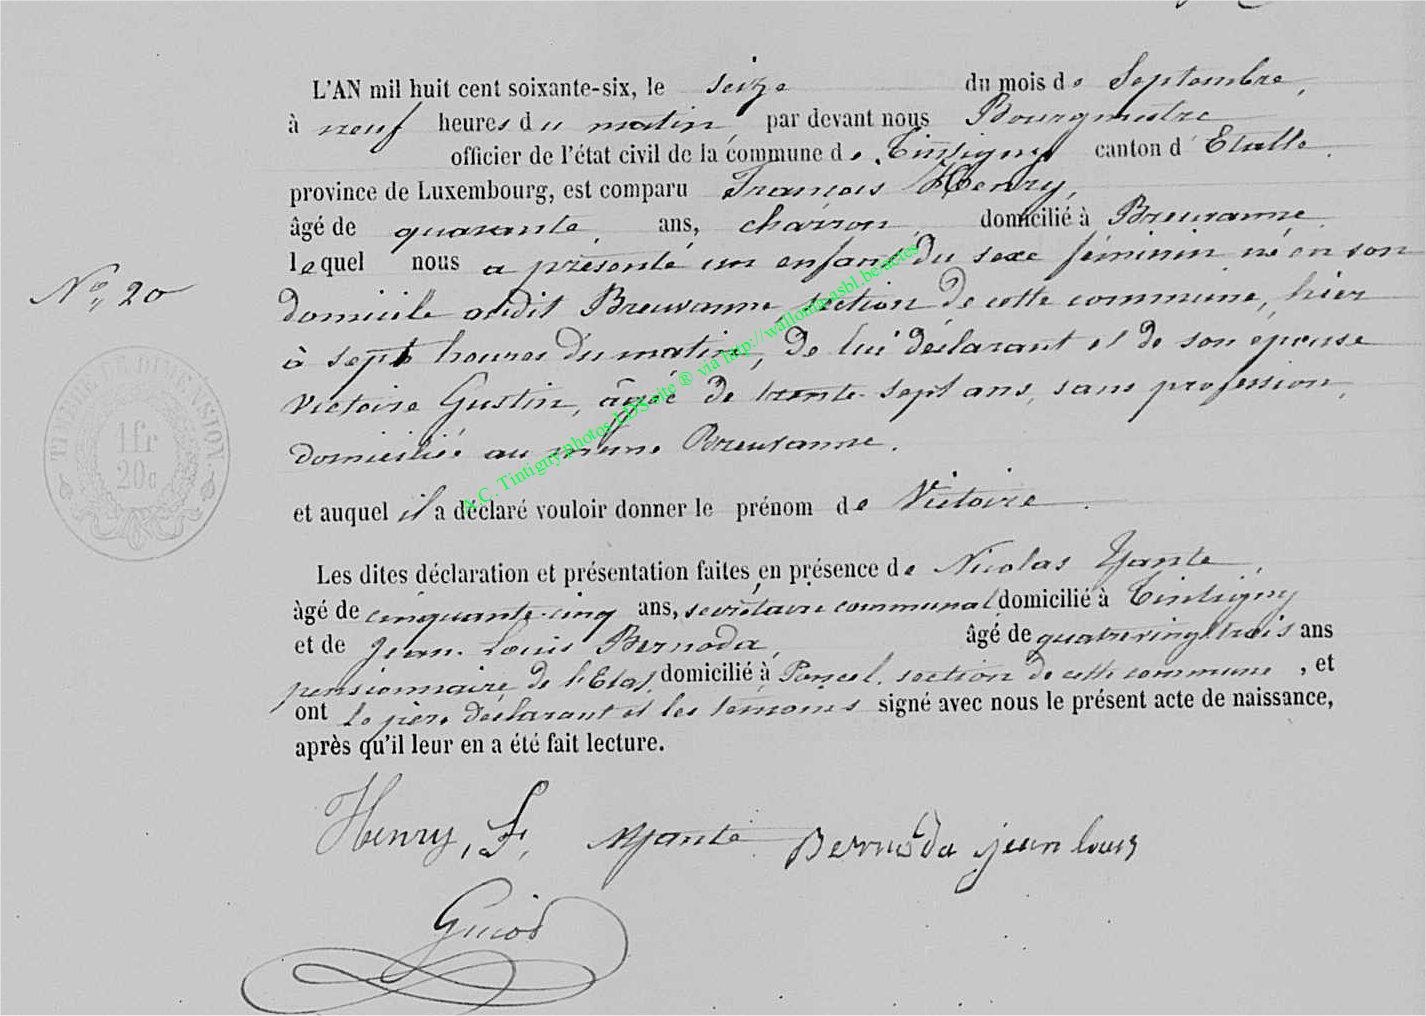 L'AN mil huit cent soixante-six, le seize du mois de Septembre,
à neuf heures du matin, par devant nous Bourgmestre
officier de l'état civil de la commune de Tintigny canton d'Etalle
province de Luxembourg, est comparu François Henry,
âgé de quarante ans, charron, domicilié à Breuvanne
lequel nous a présenté un enfant du sexe féminin né en son
No, 20
domicile audit Breuvanne, section de cette commune, hier
à sept heures du matin, de lui déclarant et de son épouse
Victoire Gustin, âgée de trente-sept ans, sans profession,
domiciliée au même Breuvanne.
TIMBRE DE DIMENSION
1fr
20c
A.C. Tintigny photos LDS site ® via http://wallonia-asbl.be/actes
et auquel il a déclaré vouloir donner le prénom de Victoire.
Les dites déclaration et présentation faites en présence de Nicolas Yante,
âgé de cinquante-cinq ans, secrétaire communal domicilié à Tintigny
et de Jean-Louis Bernoda, âgé de quatrevingt trois ans
pensionnaire de l'Etat, domicilié à Poncel, section de cette commune, et
ont le père déclarant et les témoins signé avec nous le présent acte de naissance,
après qu'il leur en a été fait lecture.
Henry, F, NYante Bernoda jean louis
Guiot